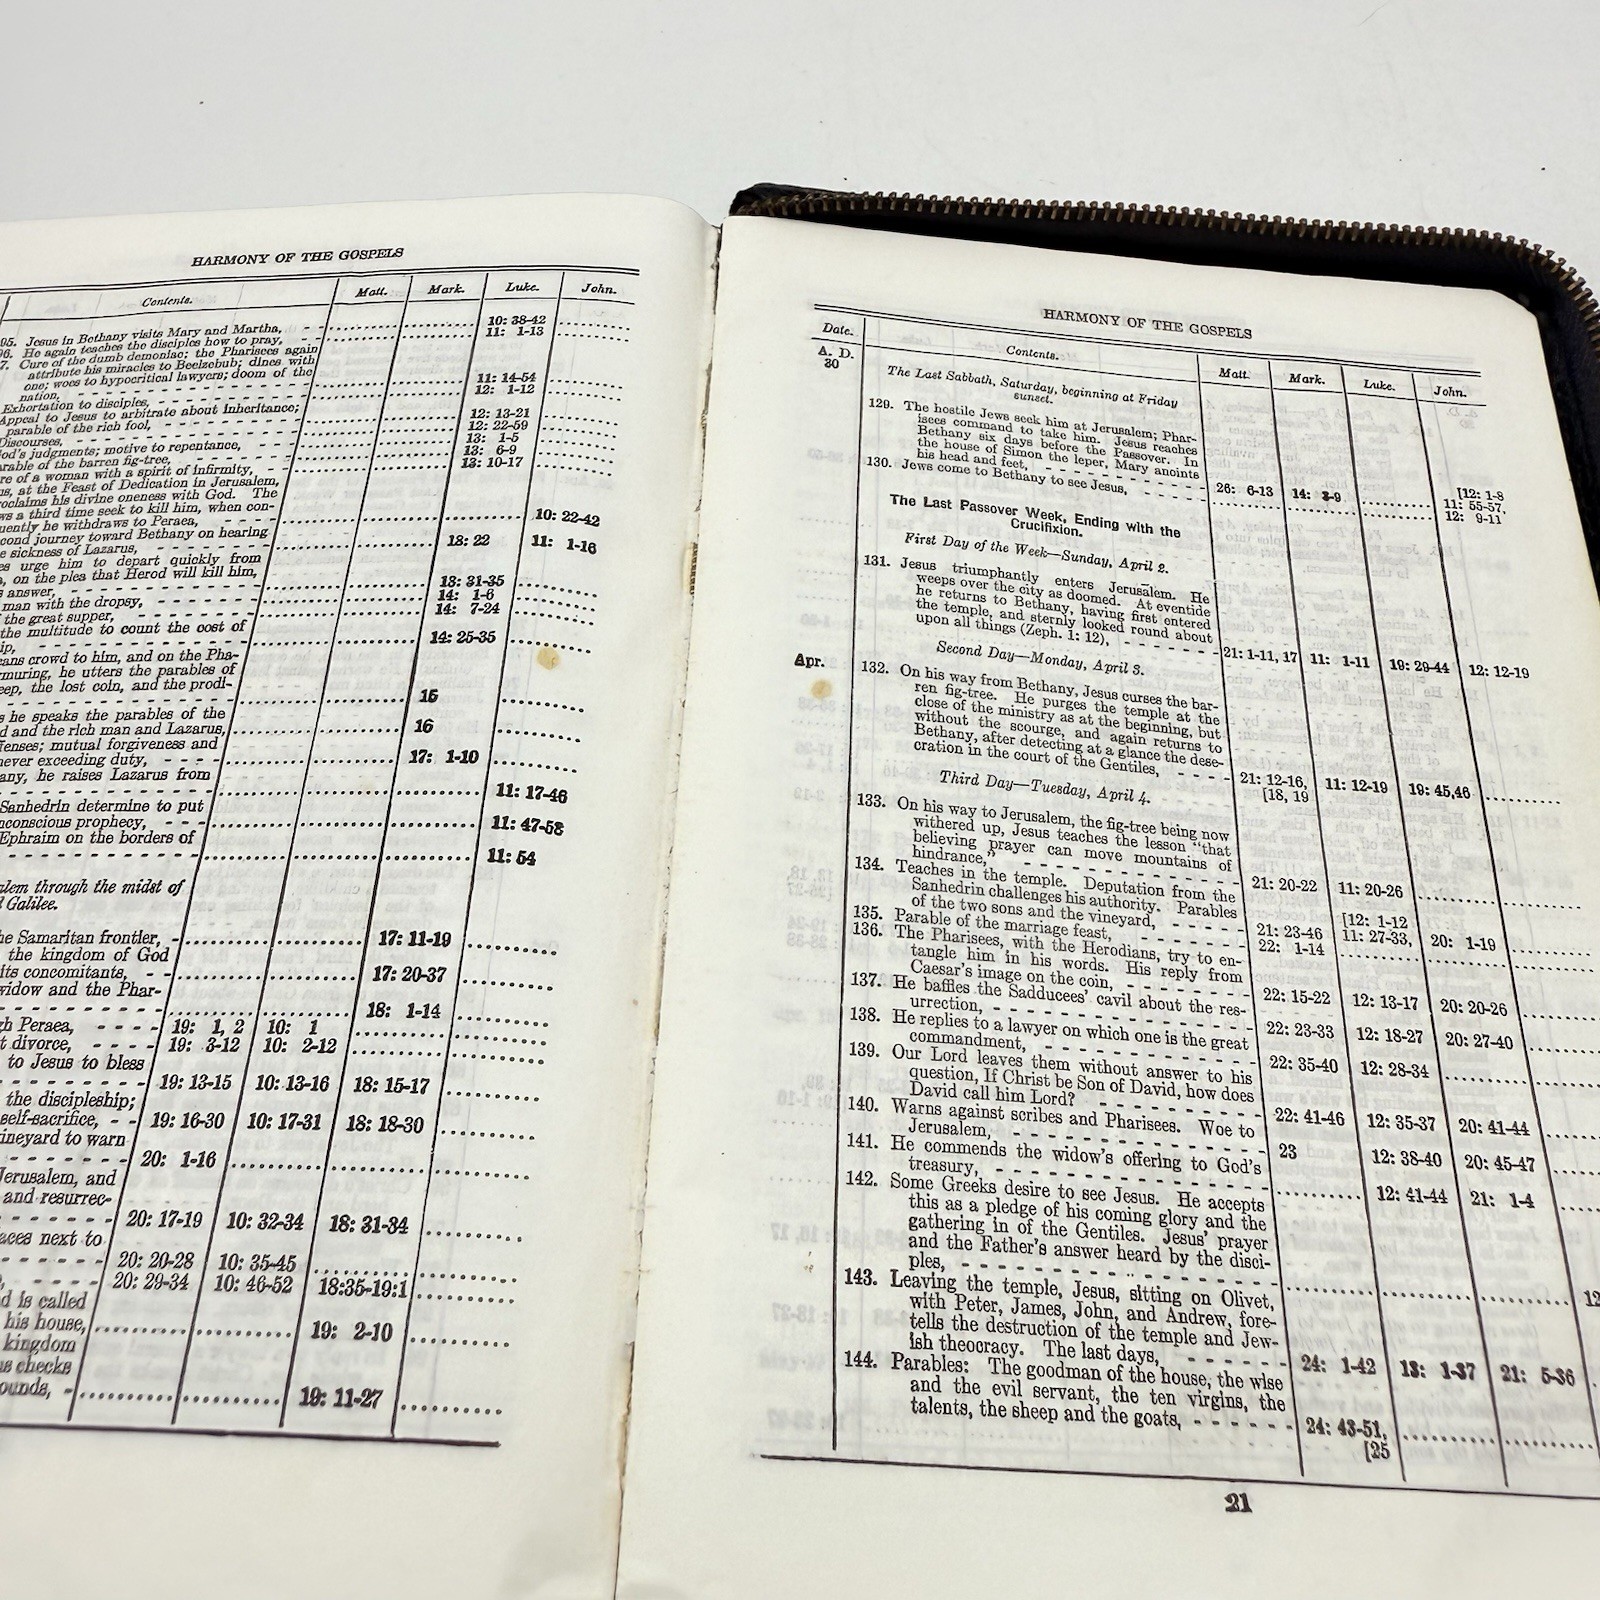 HARMONY OF THE GOSPELS
Contents. Matt. Mark. Luke. John.
95. Jesus in Bethany visits Mary and Martha, 10: 38-42
96. He again teaches the disciples how to pray, 11: 1-13
7. Cure of the dumb demoniac; the Pharisees again
attribute his miracles to Beelzebub; dines with
one; woes to hypocritical lawyers; doom of the
nation, 11: 14-54
Exhortation to disciples, 12: 1-12
Appeal to Jesus to arbitrate about inheritance;
parable of the rich fool, 12: 13-21
Discourses, 12: 22-59
God's judgments; motive to repentance, 13: 1-5
arable of the barren fig-tree, 13: 6-9
re of a woman with a spirit of infirmity, 13: 10-17
us, at the Feast of Dedication in Jerusalem,
roclaims his divine oneness with God. The
ws a third time seek to kill him, when con-
uently he withdraws to Peraea, 10: 22-42
cond journey toward Bethany on hearing
e sickness of Lazarus, 18: 22 11: 1-16
es urge him to depart quickly from
, on the plea that Herod will kill him,
s answer, 13: 31-35
man with the dropsy, 14: 1-6
f the great supper, 14: 7-24
the multitude to count the cost of
ip, 14: 25-35
eans crowd to him, and on the Pha-
rmuring, he utters the parables of
eep, the lost coin, and the prodi-
15
s he speaks the parables of the
d and the rich man and Lazarus, 16
fenses; mutual forgiveness and
never exceeding duty, 17: 1-10
any, he raises Lazarus from
11: 17-46
Sanhedrin determine to put
nconscious prophecy, 11: 47-53
Ephraim on the borders of
11: 54
alem through the midst of
d Galilee.
he Samaritan frontier, 17: 11-19
the kingdom of God
its concomitants, 17: 20-37
widow and the Phar-
18: 1-14
gh Peraea, 19: 1, 2 10: 1
t divorce, 19: 3-12 10: 2-12
to Jesus to bless
19: 13-15 10: 13-16 18: 15-17
the discipleship;
self-sacrifice, 19: 16-30 10: 17-31 18: 18-30
ineyard to warn
20: 1-16
Jerusalem, and
and resurrec-
20: 17-19 10: 32-34 18: 31-34
aces next to
20: 20-28 10: 35-45
20: 29-34 10: 46-52 18:35-19:1
d is called
his house, 19: 2-10
kingdom
as checks
ounds, 19: 11-27
HARMONY OF THE GOSPELS
Date. Contents. Matt. Mark. Luke. John.
A. D.
30
The Last Sabbath, Saturday, beginning at Friday
sunset.
129. The hostile Jews seek him at Jerusalem; Phar-
isees command to take him. Jesus reaches
Bethany six days before the Passover. In
the house of Simon the leper, Mary anoints [12: 1-8
his head and feet, 26: 6-13 14: 3-9 11: 55-57,
130. Jews come to Bethany to see Jesus, 12: 9-11
The Last Passover Week, Ending with the
Crucifixion.
First Day of the Week—Sunday, April 2.
131. Jesus triumphantly enters Jerusalem. He
weeps over the city as doomed. At eventide
he returns to Bethany, having first entered
the temple, and sternly looked round about
upon all things (Zeph. 1: 12), 21: 1-11, 17 11: 1-11 19: 29-44 12: 12-19
Second Day—Monday, April 3.
Apr.
132. On his way from Bethany, Jesus curses the bar-
ren fig-tree. He purges the temple at the
close of the ministry as at the beginning, but
without the scourge, and again returns to
Bethany, after detecting at a glance the dese-
cration in the court of the Gentiles, 21: 12-16, 11: 12-19 19: 45,46
[18, 19
Third Day—Tuesday, April 4.
133. On his way to Jerusalem, the fig-tree being now
withered up, Jesus teaches the lesson "that
believing prayer can move mountains of
hindrance," 21: 20-22 11: 20-26
134. Teaches in the temple. Deputation from the
Sanhedrin challenges his authority. Parables [12: 1-12
of the two sons and the vineyard, 21: 23-46 11: 27-33, 20: 1-19
135. Parable of the marriage feast, 22: 1-14
136. The Pharisees, with the Herodians, try to en-
tangle him in his words. His reply from
Caesar's image on the coin, 22: 15-22 12: 13-17 20: 20-26
137. He baffles the Sadducees' cavil about the res-
urrection, 22: 23-33 12: 18-27 20: 27-40
138. He replies to a lawyer on which one is the great
commandment, 22: 35-40 12: 28-34
139. Our Lord leaves them without answer to his
question, If Christ be Son of David, how does
David call him Lord? 22: 41-46 12: 35-37 20: 41-44
140. Warns against scribes and Pharisees. Woe to
Jerusalem, 23 12: 38-40 20: 45-47
141. He commends the widow's offering to God's
treasury, 12: 41-44 21: 1-4
142. Some Greeks desire to see Jesus. He accepts
this as a pledge of his coming glory and the
gathering in of the Gentiles. Jesus' prayer
and the Father's answer heard by the disci-
ples, 12
143. Leaving the temple, Jesus, sitting on Olivet,
with Peter, James, John, and Andrew, fore-
tells the destruction of the temple and Jew-
ish theocracy. The last days, 24: 1-42 13: 1-37 21: 5-36
144. Parables: The goodman of the house, the wise
and the evil servant, the ten virgins, the
talents, the sheep and the goats, 24: 43-51,
[25
21